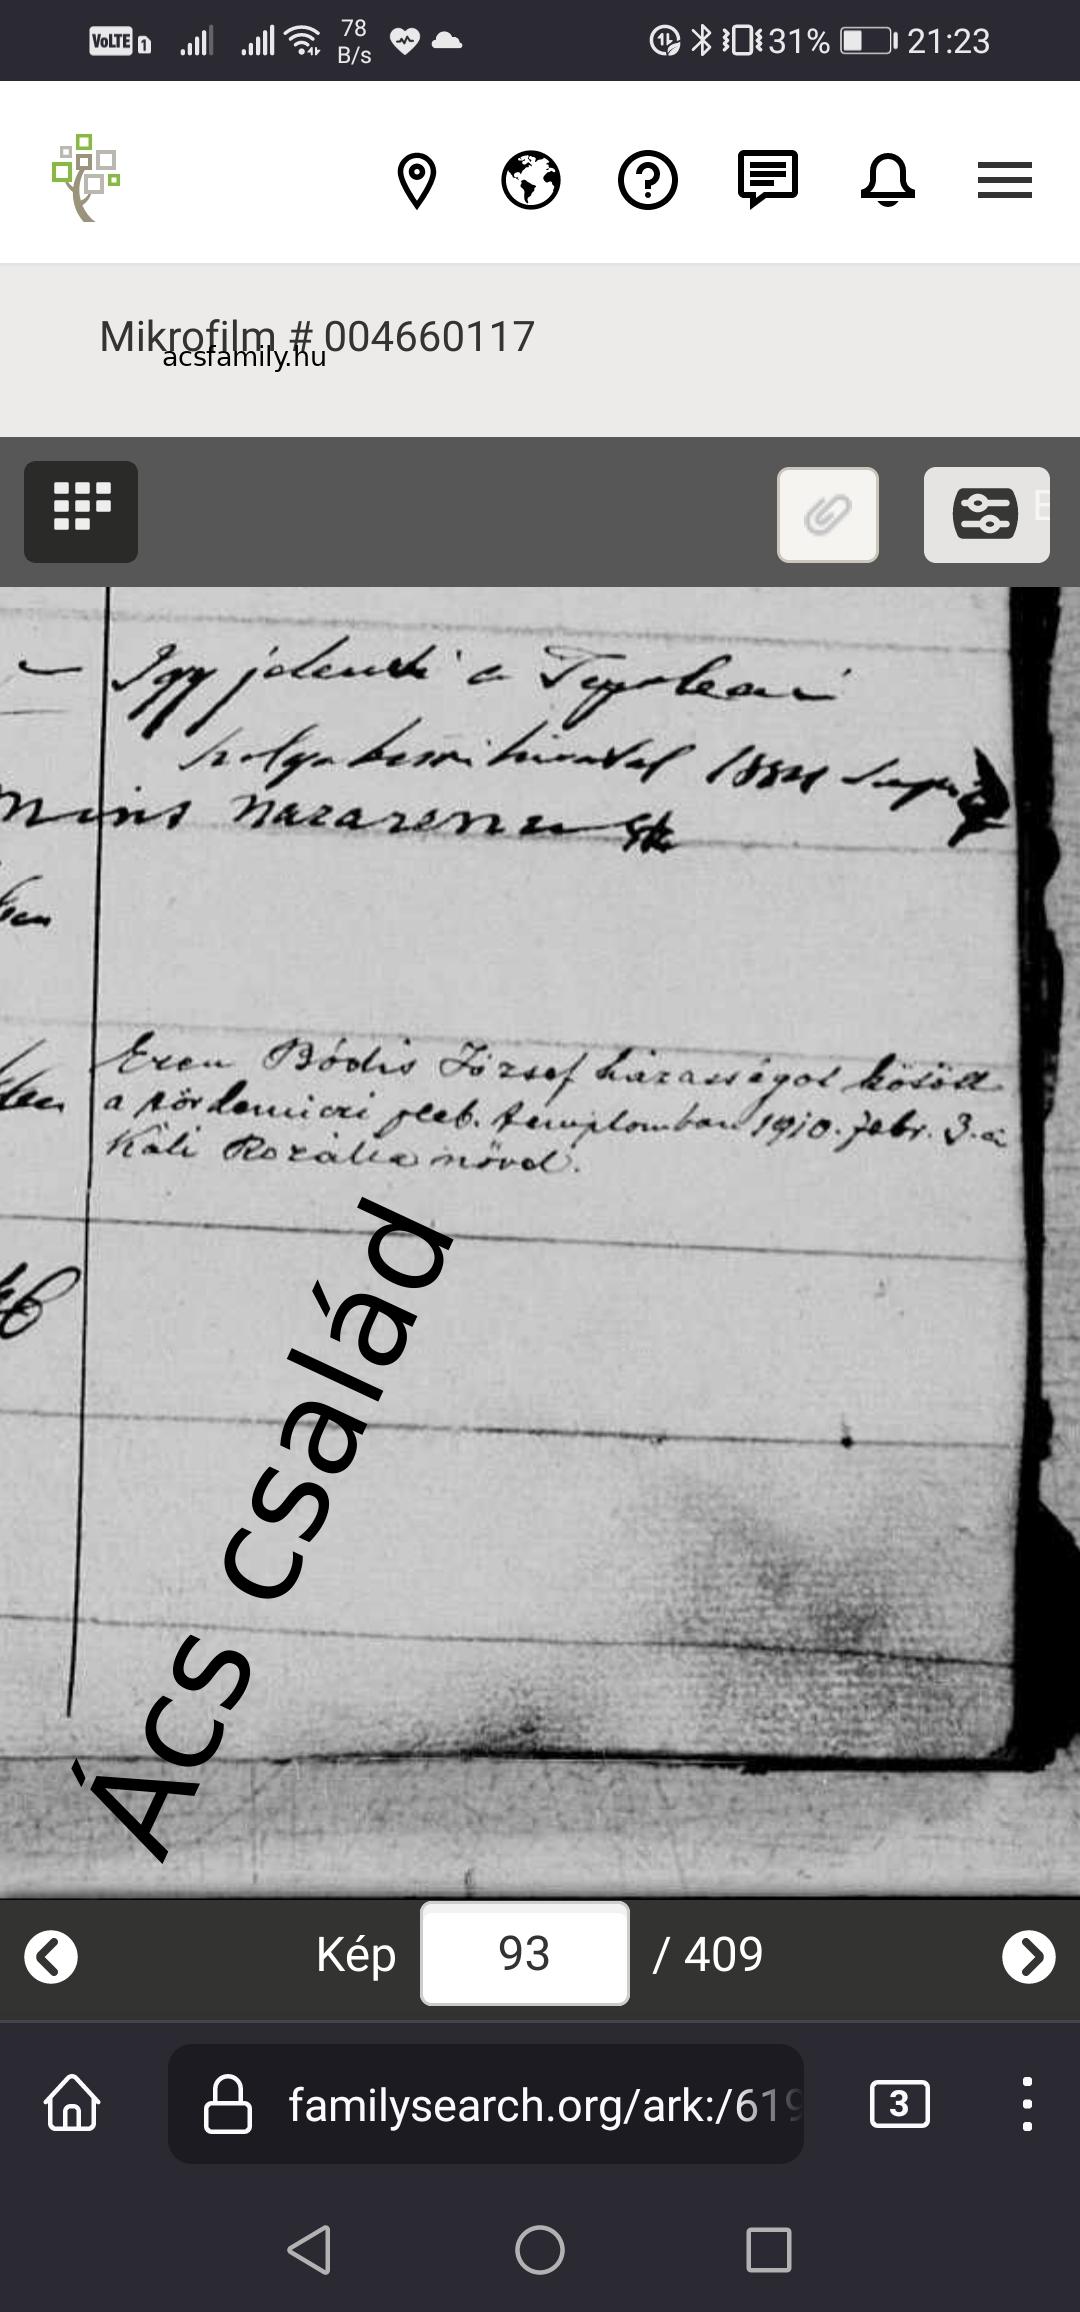 VoLTE 1 78 B/s 31% 21:23
Mikrofilm # 004660117
acsfamily.hu
Igy jelenti a
1884
nazarenus
Ezen Bódis József házasságot kötött
a pleb. templomban 1910. febr. 3.-á
Káli Rozália növel.
Ács család
Kép 93 / 409
familysearch.org/ark:/619
3